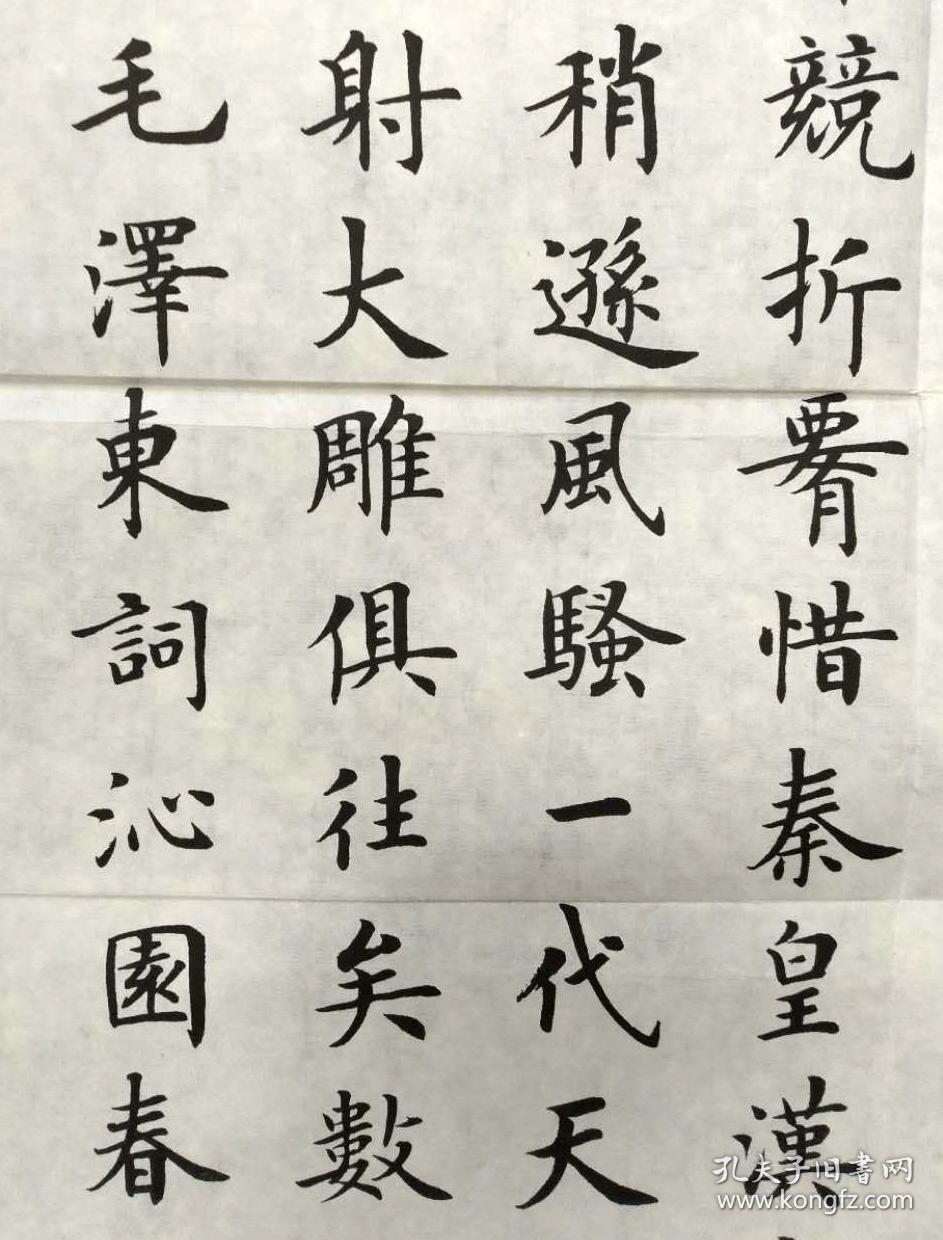 競折腰惜秦皇漢
稍遜風騷一代天
射大雕俱往矣數
毛澤東詞沁園春
孔夫子旧書网
www.kongfz.com